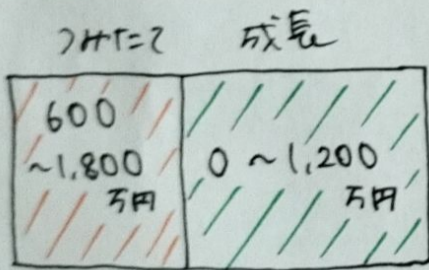 つみたて 成長
600
～1,800
万円
0 ～1,200
万円